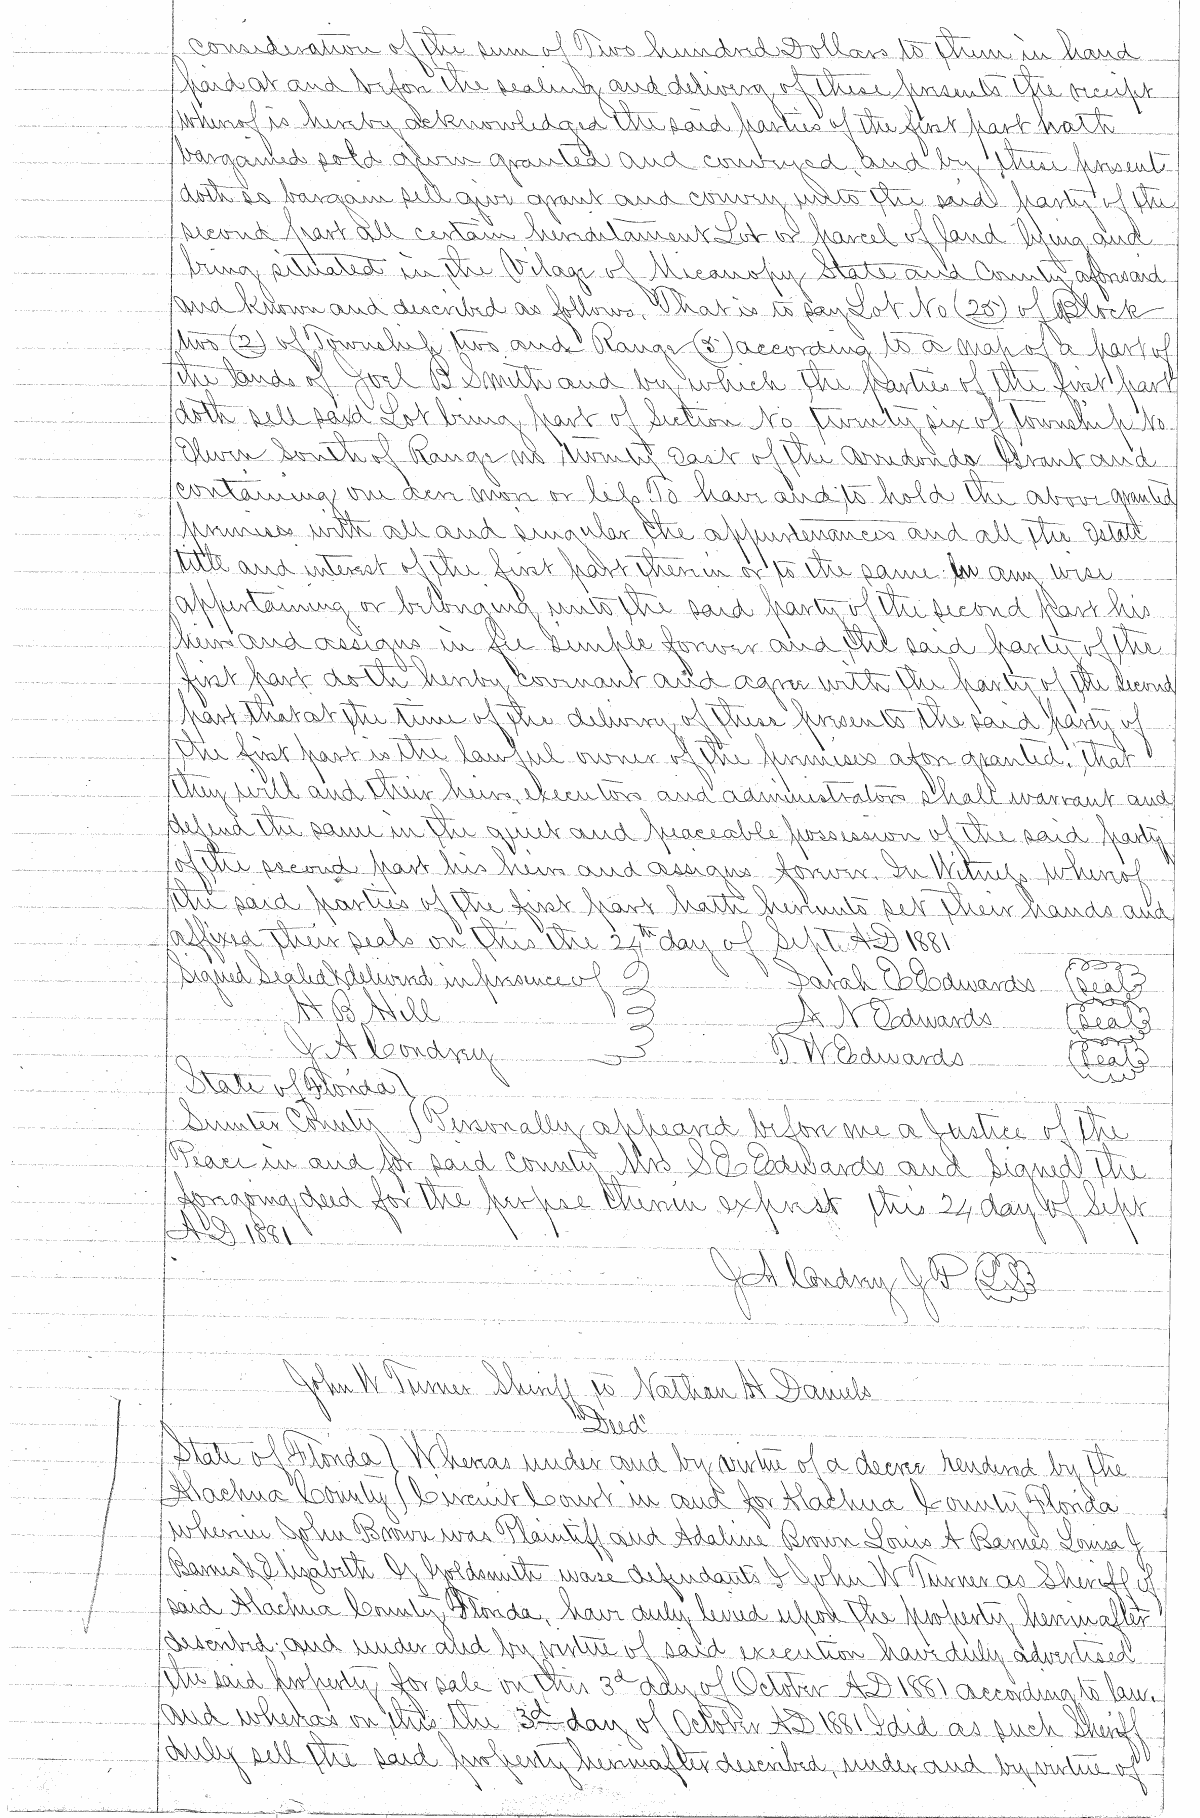 consideration of the sum of Two hundred Dollars to them in hand
paid at and befor the sealing and delivery of these presents the receipt
wherof is hereby acknowledged the said parties of the first part hath
bargained sold given granted and conveyed and by these present
doth so bargain sell give grant and convey unto the said party of the
second part all certain heriditament Lot or parcel of land lying and
being situated in the Vilage of Micanopy State and County aforesaid
and known and described as follows. That is to say Lot No (25) of Block
two (2) of Township two and Range (5) according to a map of a part of
the lands of Joel B Smith and by which the parties of the first part
doth sell said Lot being part of Section No twenty six of Township No
Elven South of Range no twenty East of the Arredondo Grant and
containing one acre more or less To have and to hold the above granted
premises with all and singular the appurtenances and all the Estate
title and interest of the first part therein or to the same in any wise
appertaining or belonging unto the said party of the second part his
heirs and assigns in fee simple forever and the said party of the
first part doth hereby covenant and agree with the party of the second
part that at the time of the delivery of these presents the said party of
the first part is the lawful owner of the premises afore granted, that
they will and their heirs, executors and administrators shall warrant and
defend the same in the quiet and peaceable possession of the said party
of the second part his heirs and assigns forever. In Witness whereof
the said parties of the first part hath hereunto set their hands and
affixed their seals on this the 24th day of Sept. AD 1881
Signed Sealed & delivered in presence of Sarah E Edwards (Seal)
H B Hill A N Edwards (Seal)
J A Condrey T. W Edwards (Seal)
State of Florida)
Sumter County ) Personally appeared before me a Justice of the
Peace in and for said County Mrs S E Edwards and signed the
foregoing deed for the purpse therein exprest this 24 day of Sept
AD 1881
J A Condrey J P (L.S)
John W Turner Sheriff to Nathan H Daniels
"Deed"
State of Florida) Whereas under and by virtue of a decree rendered by the
Alachua County ( Circuit Court in and for Alachua County Florida
wherein John Brown was Plaintiff and Adaline Brown Louis A Barnes Louisa J
Barnes & Elizabeth G Goldsmith wase defendants I John W Turner as Sheriff of
said Alachua County, Florida, have duly levied upon the property hereinafter
described, and under and by virtue of said execution have duly advertised
the said property for sale on this 3d day of October AD 1881 according to law.
and whereas on this the 3d day of October AD 1881 I did as such Sheriff
duly sell the said property hereinafter described, under and by virtue of